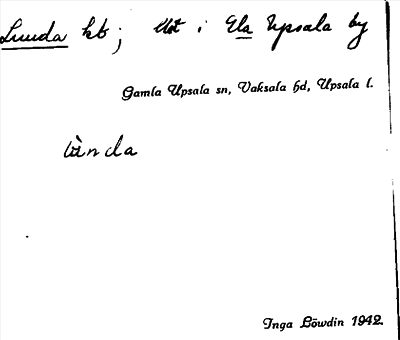 Lunda hb; i Gla Upsala by
Gamla Upsala sn, Vaksala hd, Upsala l.
Inga Löwdin 1942.